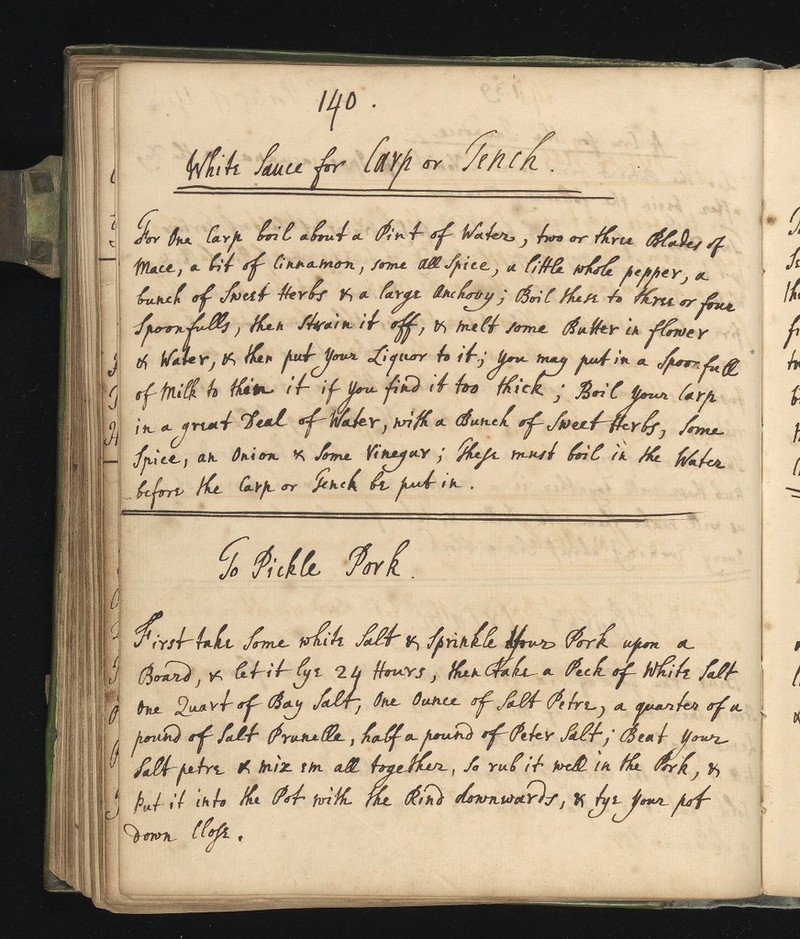 140.
White Sauce for Carp or Tench.
For One Carp boil about a Pint of Water, two or three Blades of
Mace, a bit of Cinnamon, some All Spice, a little whole pepper, a
bunch of Sweet Herbs & a large Anchovy; Boil these to three or four
Spoonfulls, then Strain it off, & melt some Butter in flower
& Water, & then put your Liquor to it; you may put in a Spoonfull
of Milk to thin it if you find it too thick; Boil your Carp
in a great Deal of Water, with a Bunch of Sweet Herbs, Some
Spice, an Onion & Some Vinegar; These must boil in the Water
before the Carp or Tench be put in.
To Pickle Pork.
First take Some white Salt & Sprinkle Your Pork upon a
Board, & let it lye 24 Hours, then take a Peck of White Salt
One Quart of Bay Salt, One Ounce of Salt Petre, a quarter of a
pound of Salt Prunelle, half a pound of Peter Salt; Beat your
Salt petre & mix em all together, So rub it well in the Pork, &
put it into the Pot with the Rind downwards, & tye your pot
down Close.